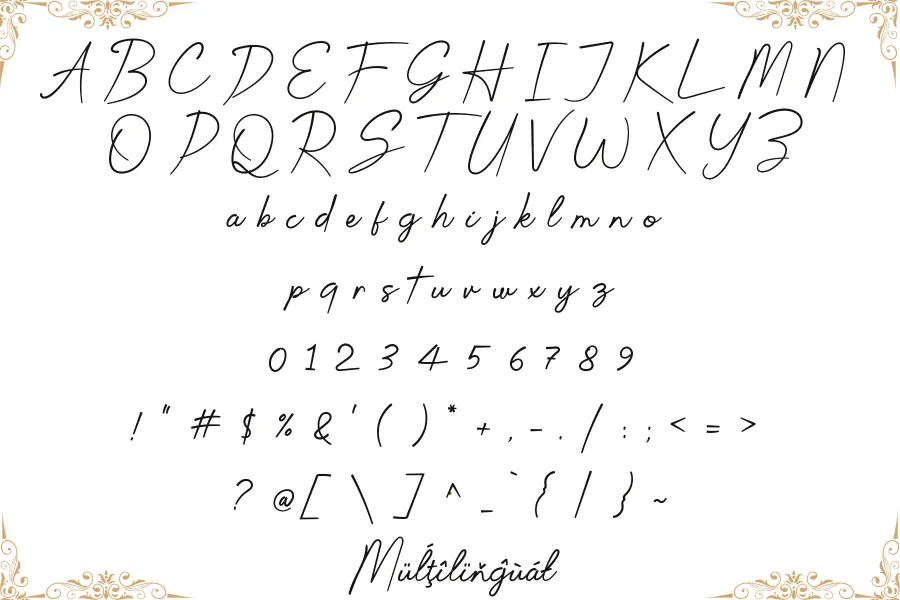 A B C D E F G H I J K L M N
O P Q R S T U V W X Y Z
a b c d e f g h i j k l m n o
p q r s t u v w x y z
0 1 2 3 4 5 6 7 8 9
! " # $ % & ' ( ) * + , - . / : ; < = >
? @ [ \ ] ^ _ ` { | } ~
Mülţîlïňĝùáł